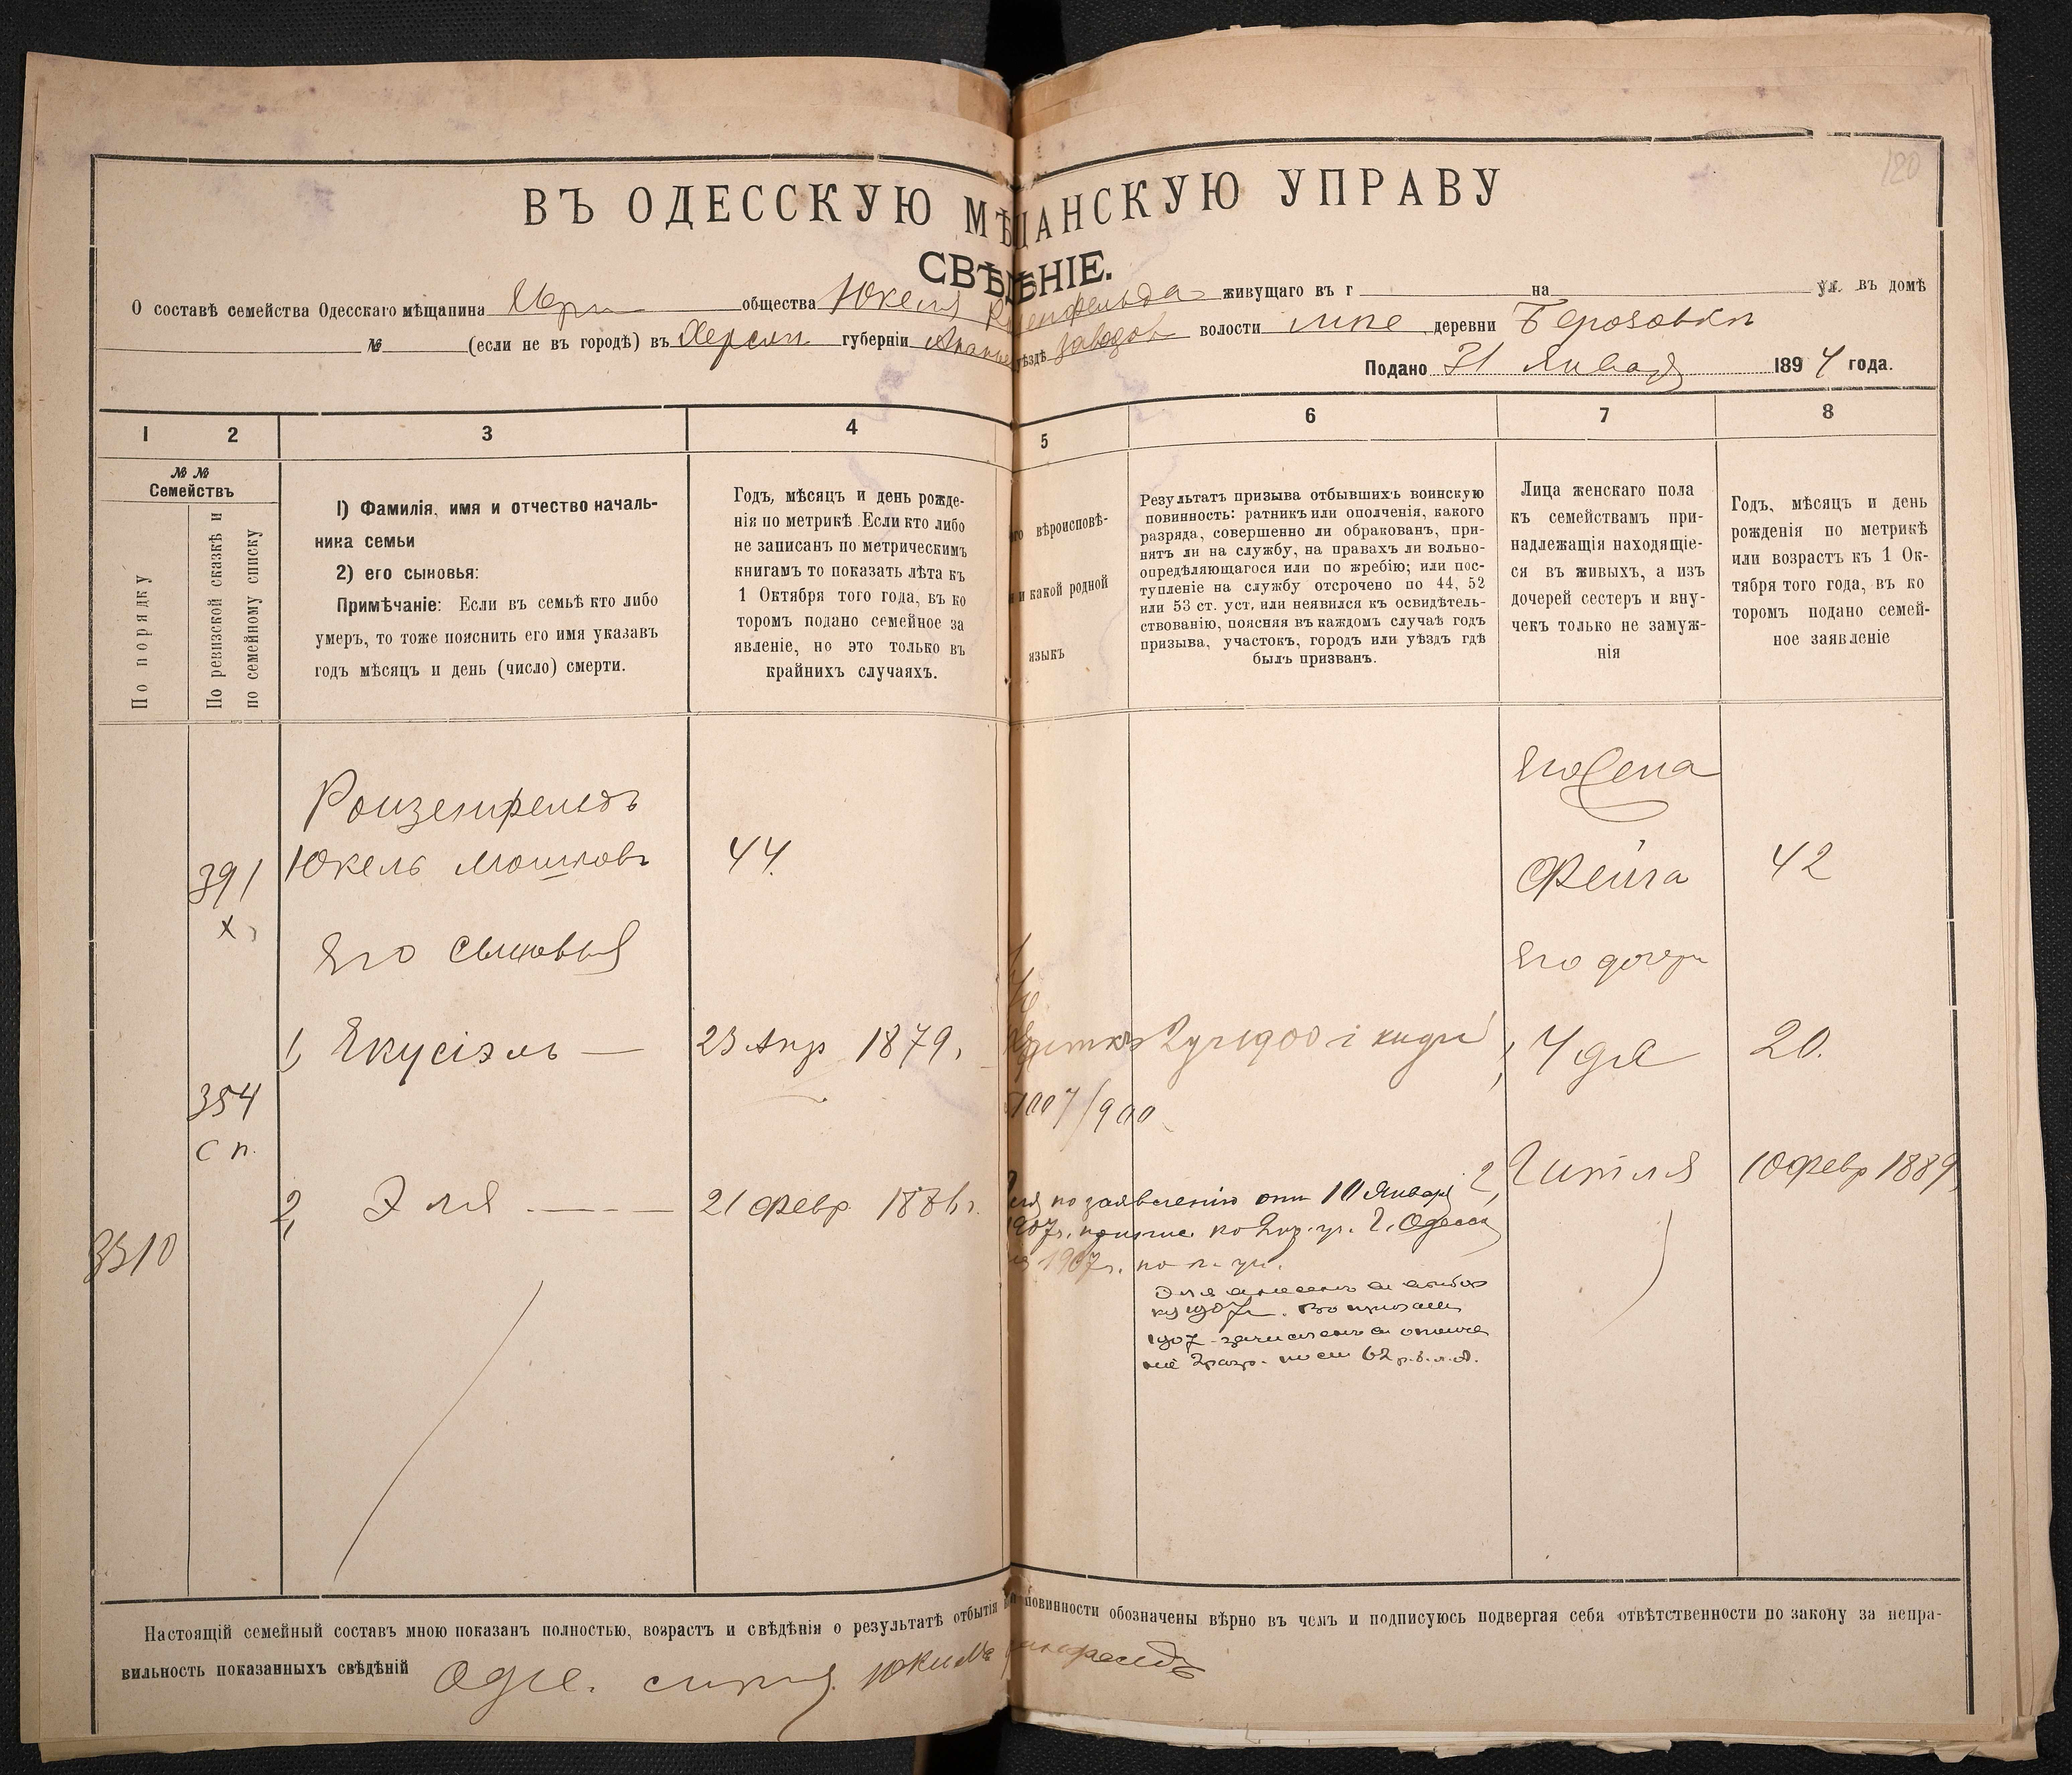 120
ВЪ ОДЕССКУЮ МѢЩАНСКУЮ УПРАВУ
СВѢДѢНІЕ.
О составѣ семейства Одесскаго мѣщанина общества Юкеля живущаго въ г на ул. въ домѣ
№ (если не въ городѣ) въ Херсон губерніи Анань уѣздѣ волости деревни Березовки
Подано 31 Января 1894 года.
1 2 3 4 5 6 7 8
№ №
Семействъ
По порядку
По ревизской сказкѣ и
по семейному списку
1) Фамилія, имя и отчество началь-
ника семьи
2) его сыновья:
Примѣчаніе: Если въ семьѣ кто либо
умеръ, то тоже пояснить его имя указавъ
годъ мѣсяцъ и день (число) смерти.
Годъ, мѣсяцъ и день рожде-
нія по метрикѣ Если кто либо
не записанъ по метрическимъ
книгамъ то показать лѣта къ
1 Октября того года, въ ко
торомъ подано семейное за
явленіе, но это только въ
крайнихъ случаяхъ.
вѣроисповѣ-
и какой родной
языкъ
Результатъ призыва отбывшихъ воинскую
повинность: ратникъ или ополченія, какого
разряда, совершенно ли обракованъ, при-
нятъ ли на службу, на правахъ ли вольно-
опредѣляющагося или по жребію; или пос-
тупленіе на службу отсрочено по 44, 52
или 53 ст. уст. или неявился къ освидѣтель-
ствованію, поясняя въ каждомъ случаѣ годъ
призыва, участокъ, городъ или уѣздъ гдѣ
былъ призванъ.
Лица женскаго пола
къ семействамъ при-
надлежащія находящіе-
ся въ живыхъ, а изъ
дочерей сестеръ и вну-
чекъ только не замуж-
нія
Годъ, мѣсяцъ и день
рожденія по метрикѣ
или возрастъ къ 1 Ок-
тября того года, въ ко
торомъ подано семей-
ное заявленіе
Его жена
Роизенфельдъ
391 Юкель Мошковъ 44. Фейга 42
х
Его сыновья Его дочери
1, Екусіэль — 23 Апр 1879. 1900 1, Удя 20.
354
с п.
2, Эля 21 Февр. 1886 г. по заявленію отъ 10 Января 2, Гитля 10 Февр 1889
1907г. г. Одессы
3310
1907г. по
Эля
1907г.
1907 зачисленъ въ ополче
ніе 2 разр. по ст 62
Настоящій семейный составъ мною показанъ полностью, возрастъ и свѣдѣнія о результатѣ отбытія повинности обозначены вѣрно въ чемъ и подписуюсь подвергая себя отвѣтственности по закону за непра-
вильность показанныхъ свѣдѣній